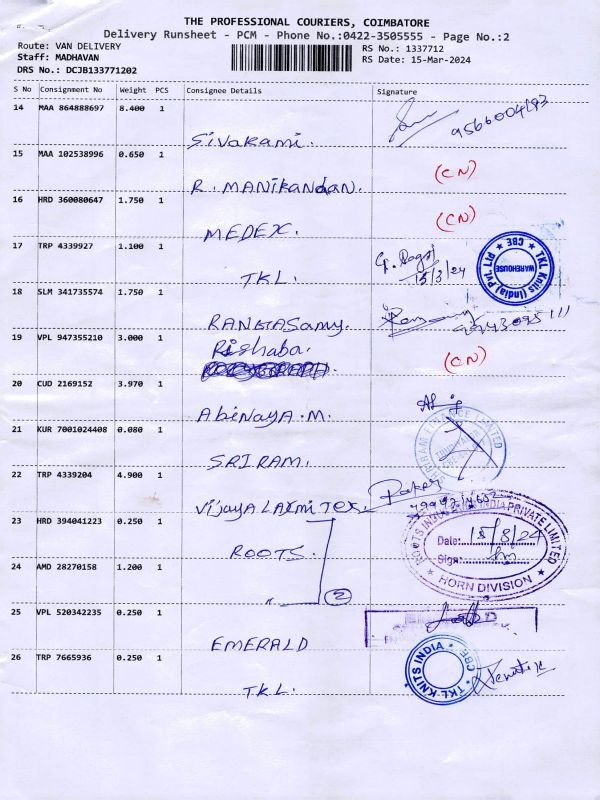 THE PROFESSIONAL COURIERS, COIMBATORE
Delivery Runsheet - PCM - Phone No.:0422-3505555 - Page No.:2
Route: VAN DELIVERY
RS No.: 1337712
Staff: MADHAVAN
RS Date: 15-Mar-2024
DRS No.: DCJB133771202
S No Consignment No Weight PCS Consignee Details Signature
14 MAA 864888697 8.400 1
9566004193
Sivakami.
15 MAA 102538996 0.650 1
(CN)
R. MANikandan.
16 HRD 360080647 1.750 1
(CN)
MEDEX.
17 TRP 4339927 1.100 1
15/3/24
TKL Knits (India) Pvt Ltd
CBE
WAREHOUSE
TKL.
18 SLM 341735574 1.750 1
RANGASamy.
19 VPL 947355210 3.000 1
Rishaba.
(CN)
20 CUD 2169152 3.970 1
Abinaya.M.
21 KUR 7001024408 0.080 1
SRIRAM.
22 TRP 4339204 4.900 1
Vijaya LAXmi Tex
23 HRD 394041223 0.250 1
ROOTS INDIA PRIVATE LIMITED
Date: 15/3/24
Sign:
HORN DIVISION
ROOTS.
24 AMD 28270158 1.200 1
„
2
25 VPL 520342235 0.250 1
EMERALD
26 TRP 7665936 0.250 1
TKL-KNITS INDIA
CBE
TKL.